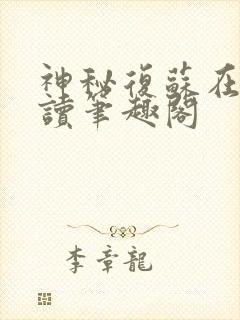 神秘復蘇在
讀筆趣閣
李章龍